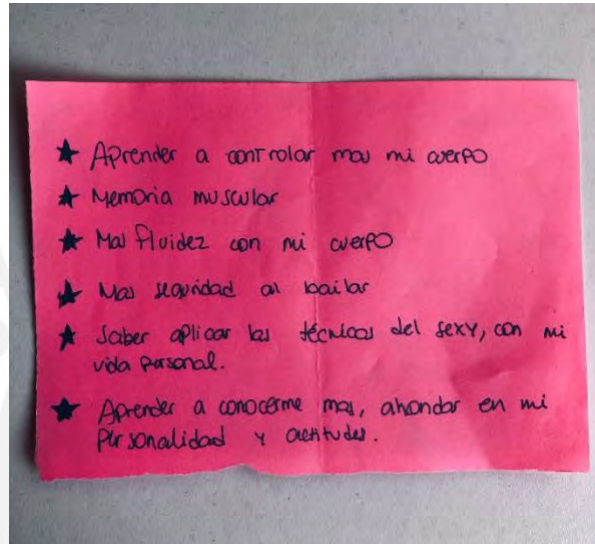 ★ Aprender a controlar mas mi cuerpo
★ Memoria muscular
★ Mas fluidez con mi cuerpo
★ Mas seguridad al bailar
★ Saber aplicar las técnicas del sexy, con mi
vida personal.
★ Aprender a conocerme mas, ahondar en mi
personalidad y actitudes.